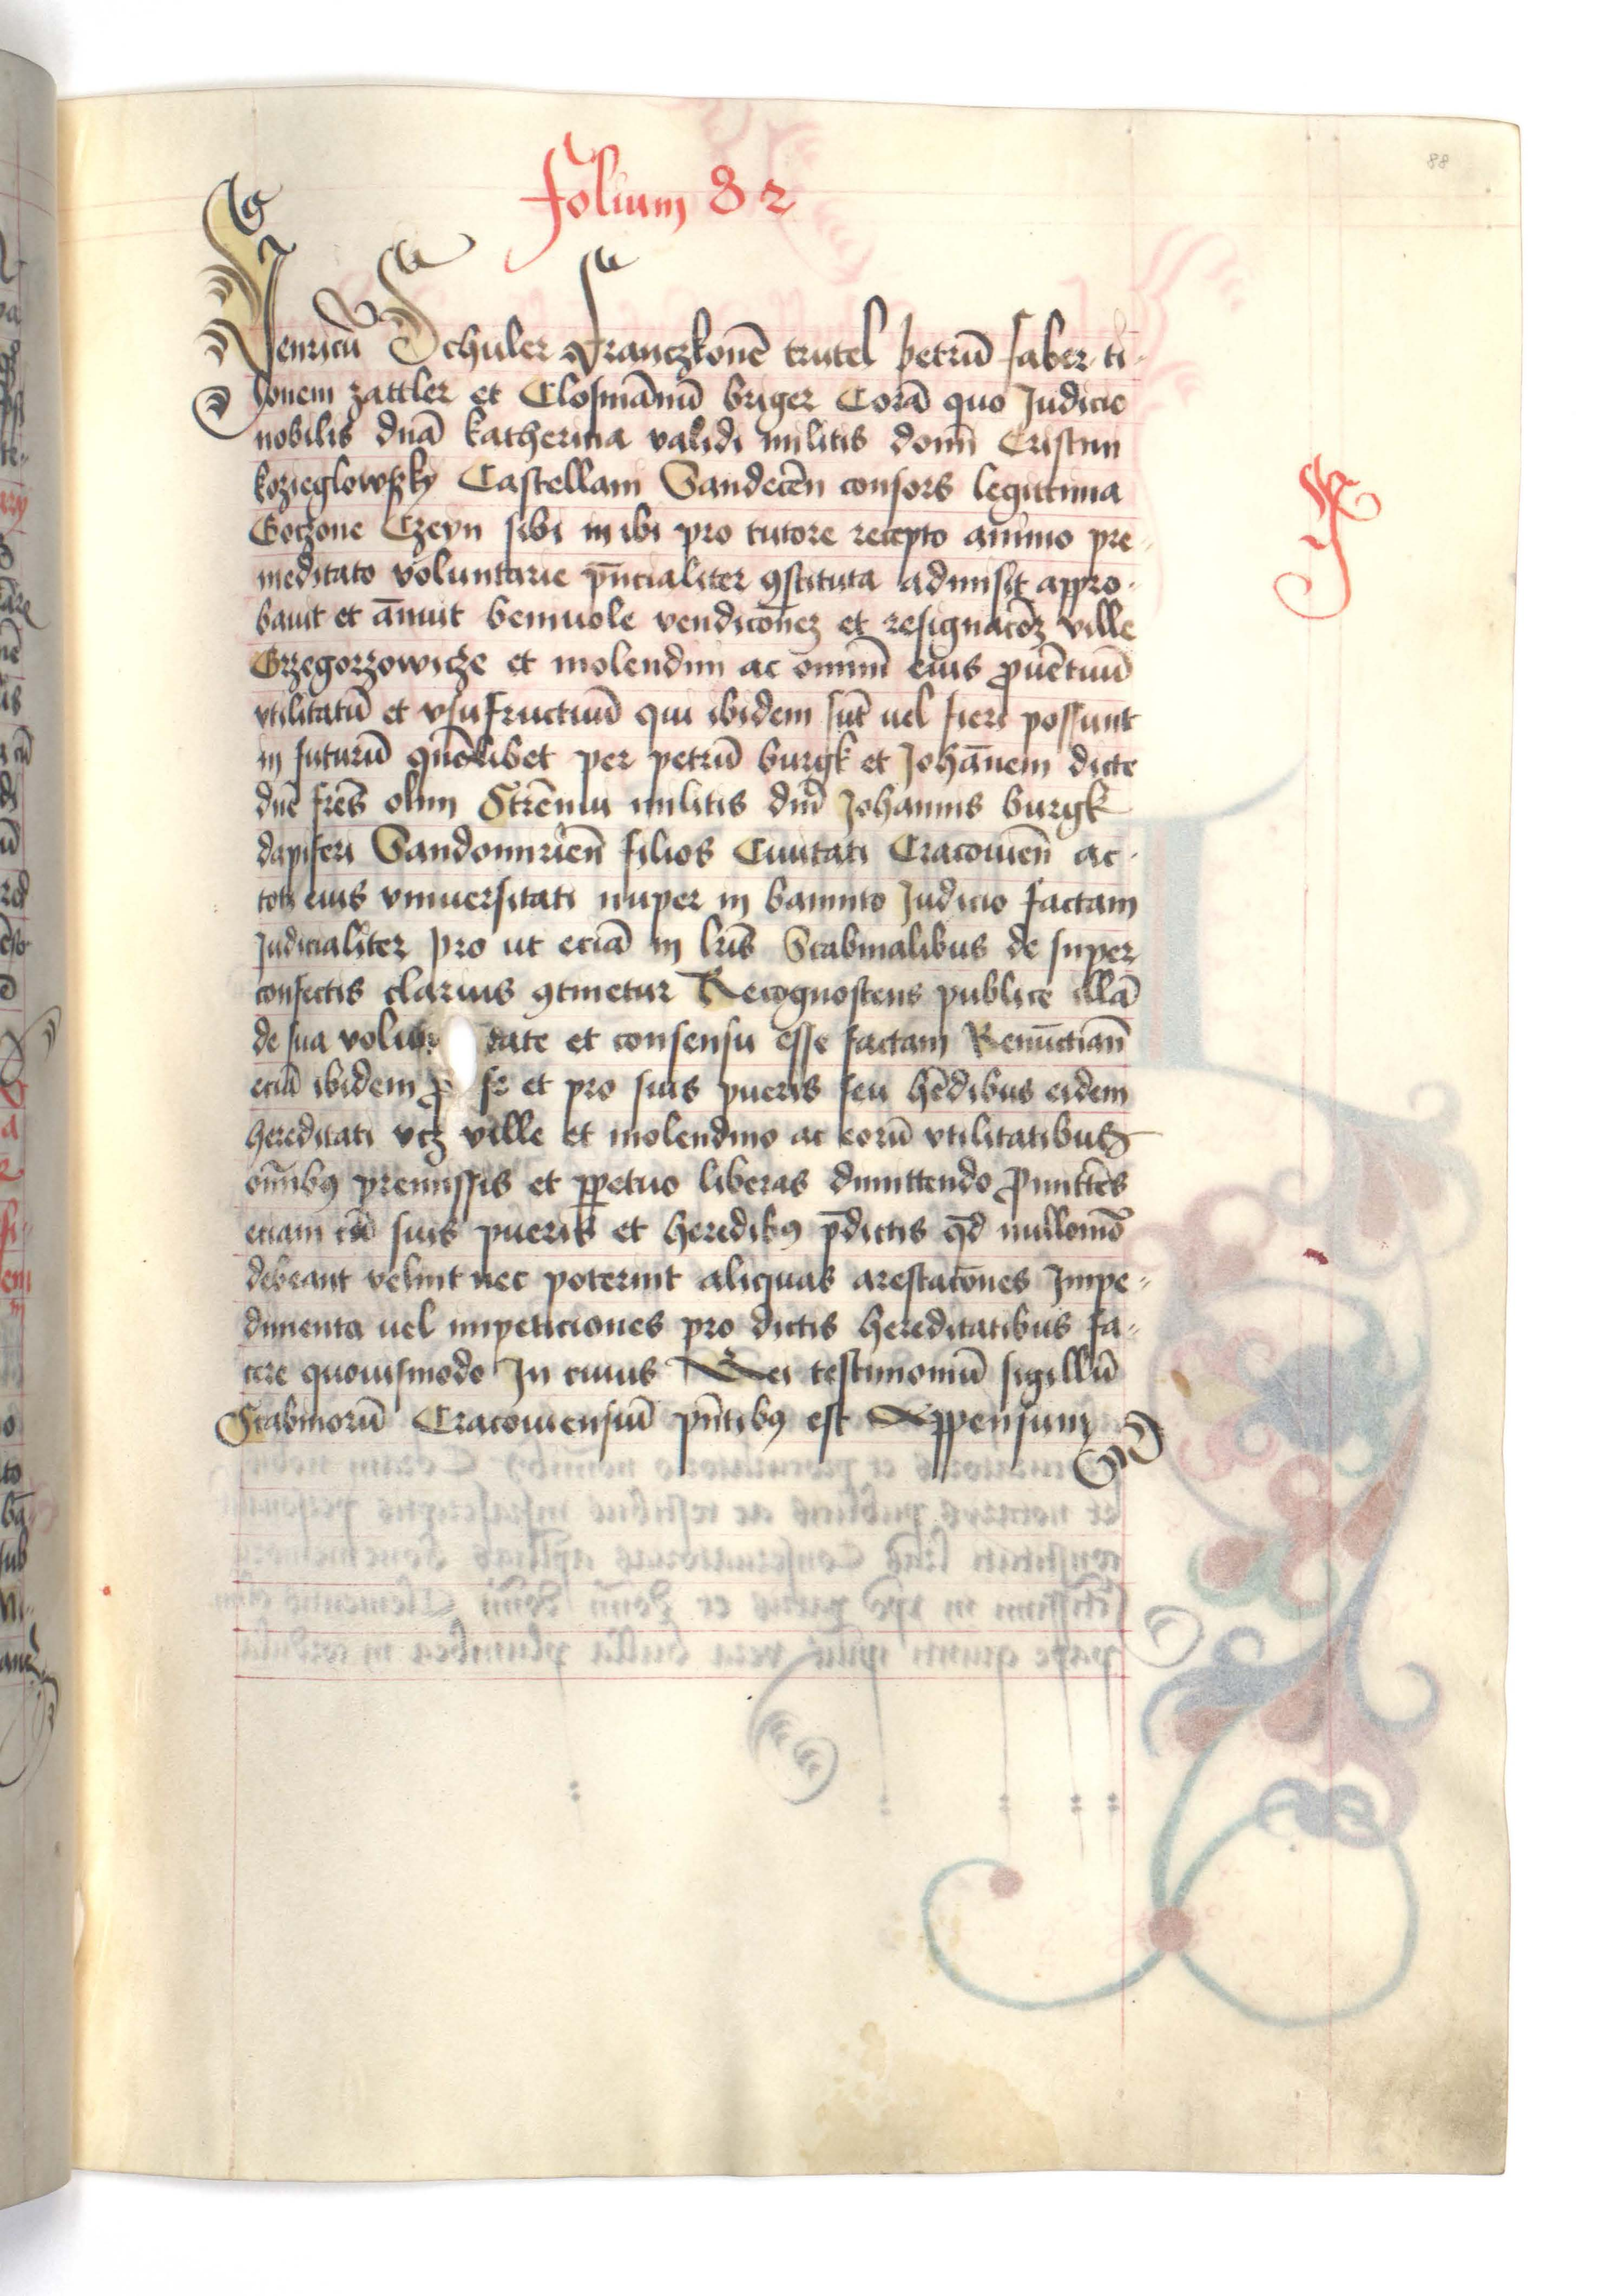 88
folium 82
Henricū Schuler Franczkonē trutel petrū faber ti-
lonem zattler et Closmānū briger Corā quo Judicio
nobilis dnā katherina validi militis domī Cristini
kozieglowszky Castellani Sandecēn consors legittima
Goczone Czeyn sibi in ibi pro tutore recepto animo pre-
meditato voluntarie pn̄cialiter ꝯstituta admisit appro-
bauit et āmuit beniuole vendicōnez et resignacōez ville
Grzegorzowicze et molendini ac omniū eius ꝓuētuū
vtilitatū et vsufructuū qui ibidem sūt uel fieri possunt
in futurū quōlibet per petrū burgk et Johānem dicte
dnē frēs olim Strēnui militis dnī Johannis burgk
dapiferi Sandomiriēn filios Ciuitati Cracouiēn ac
toti eius vniuersitati nuper in bannito Judicio factam
Judicialiter pro ut eciā in lrīs Scabinalibus de super
confectis clarius ꝯtinetur Recognoscens publice illā
de sua volun tate et consensu esse factam Renūctiañ
eciā ibidem ꝓ se et pro suis pueris seu hēdibus eidem
hereditati vcz ville et molendino ac eorū vtilitatibus
om̄ibꝯ premissis et ꝑpetuo liberas dimittendo Ꝓmittēs
eciam cū suis pueris et heredibꝯ p̄dictis qd̄ nullomō
debeant velint nec poterint aliquas arestacōnes Impe-
dimenta uel impeticiones pro dictis hereditatibus fa-
cere quouismodo In cuius Rei testimoniū sigillū
Scabinorū Cracouiensiū pn̄tibꝯ est Appensum